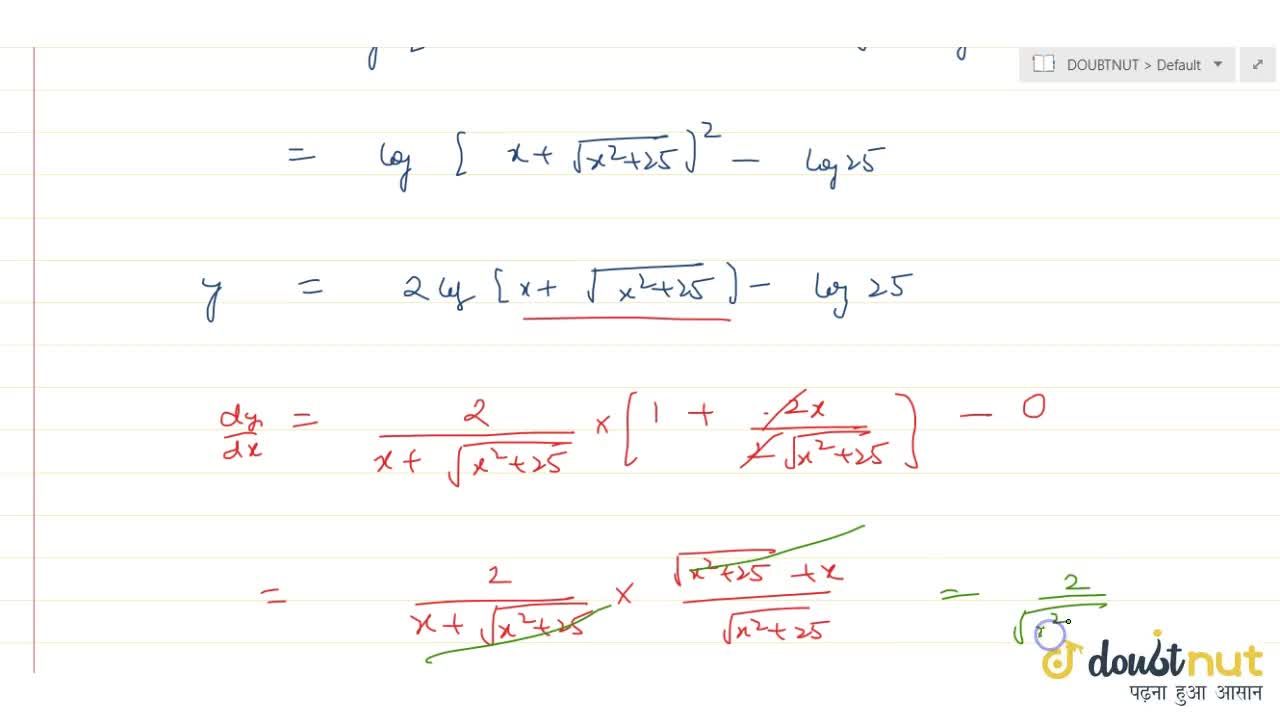 DOUBTNUT > Default
= log [ x + √(x²+25) ]² − log 25
y = 2 log [ x + √(x²+25) ] − log 25
dy/dx = 2/(x + √(x²+25)) × [ 1 + 2x/(2√(x²+25)) ] − 0
= 2/(x + √(x²+25)) × (√(x²+25) + x)/√(x²+25) = 2/√(x²
doubtnut
पढ़ना हुआ आसान